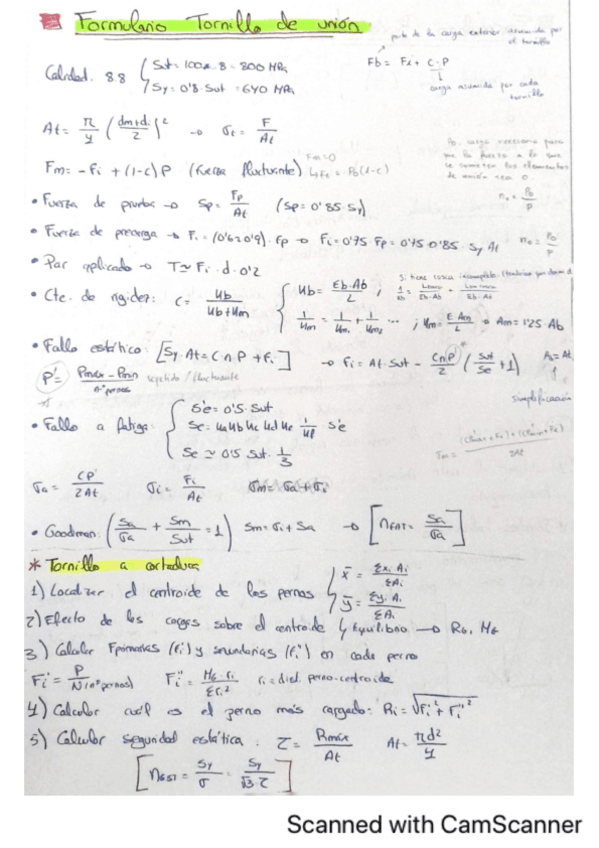 Formulario Tornillo de unión
parte de la carga exterior asumida por
el tornillo
Fb = Fi + C·P
carga asumida por cada
tornillo
Calidad. 8.8 { Sut = 100·8 = 800 MPa
Sy = 0'8·Sut = 640 MPa
At = π/4 (dm+di/2)² → σt = F/At
Fm = -Fi + (1-C)P (fuerza fluctuante) Fm=0 ↳ Fi = P0(1-C)
P0. carga necesaria para
que la fuerza a la que
se someten los elementos
de unión sea 0.
n0 = P0/P
• Fuerza de prueba → Sp = Fp/At (Sp = 0'85·Sy)
• Fuerza de precarga → Fi = (0'6÷0'9)·Fp → Fi = 0'75 Fp = 0'75·0'85·Sy At n0 = P0/P
• Par aplicado → T ≃ Fi·d·0'2
• Cte. de rigidez: C = Ub/(Ub+Um) { Ub = Eb·Ab/L ;
1/Um = 1/Um1 + 1/Um2 ... ; Um = E Am/L Am = 1'25·Ab
• Fallo estático: [Sy·At = C n P + Fi] → Fi = At·Sut - CnP/2 (Sut/Se + 1)
P' = Pmax - Pmin / nº pernos repetido / fluctuante
simplificación
• Fallo a fatiga: { S'e = 0'5·Sut
Se = Ua Ub Uc Ud Ue 1/Uf S'e
Se ≃ 0'5 Sut · 1/3
σa = CP/2At σi = Fi/At σm = σa + σi
• Goodman: (Sa/σa + Sm/Sut = 1) Sm = σi + Sa → [nFAT = Sa/σa]
* Tornillo a cortadura
1) Localizar el centroide de los pernos { x̄ = Σxi Ai/ΣAi
ȳ = Σyi Ai/ΣAi
2) Efecto de las cargas sobre el centroide ↳ Equilibrio → RG, MG
3) Calcular Fprimarias (Fi') y secundarias (Fi'') en cada perno
Fi' = P/N (nº pernos) Fi'' = MG·ri/Σri² ri = dist. perno-centroide
4) Calcular cuál es el perno más cargado: Ri = √Fi'² + Fi''²
5) Calcular seguridad estática: τ = Rmáx/At At = πd²/4
[nEST = Sy/σ = Sy/√3·τ]
Scanned with CamScanner